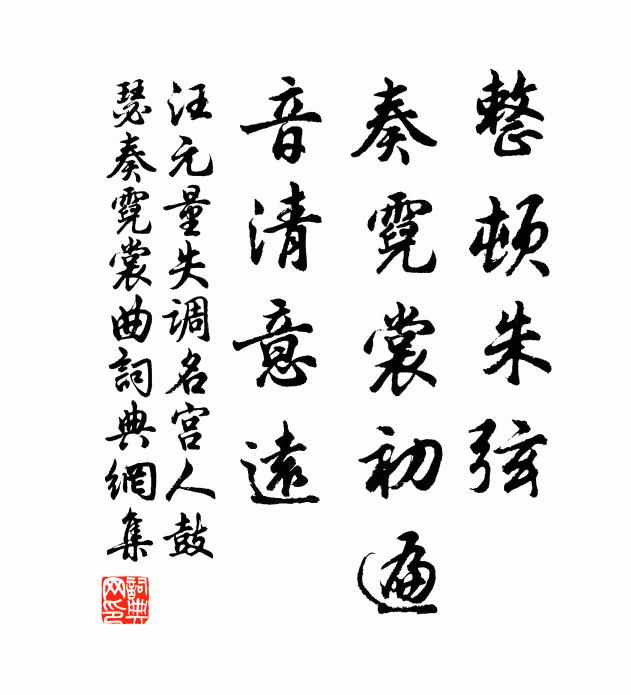 整顿朱弦
奏霓裳初遍
音清意遠
汪元量失调名宫人鼓
瑟奏霓裳曲詞典網集
詞典網印